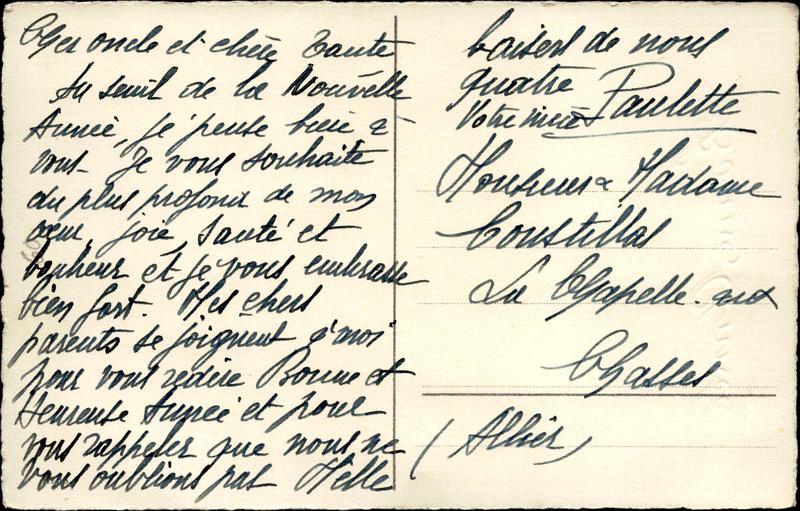 Cher oncle et chère Tante
Au seuil de la Nouvelle
Année, je pense bien à
vous. Je vous souhaite
du plus profond de mon
cœur, joie, santé et
bonheur et je vous embrasse
bien fort. Mes chers
parents se joignent à moi
pour vous redire Bonne et
Heureuse Année et pour
vous rappeler que nous ne
vous oublions pas Mille
baisers de nous
quatre
Votre nièce Paulette
Monsieur & Madame
La Chapelle aux
Chasses
(Allier)